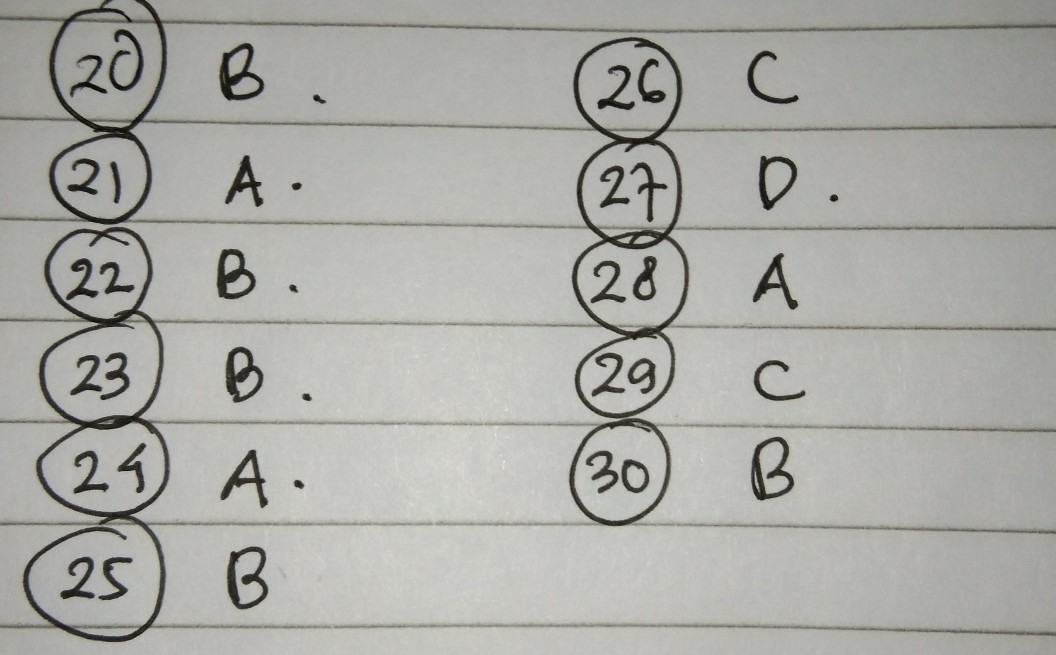 20 B.
21 A.
22 B.
23 B.
24 A.
25 B
26 C
27 D.
28 A
29 C
30 B